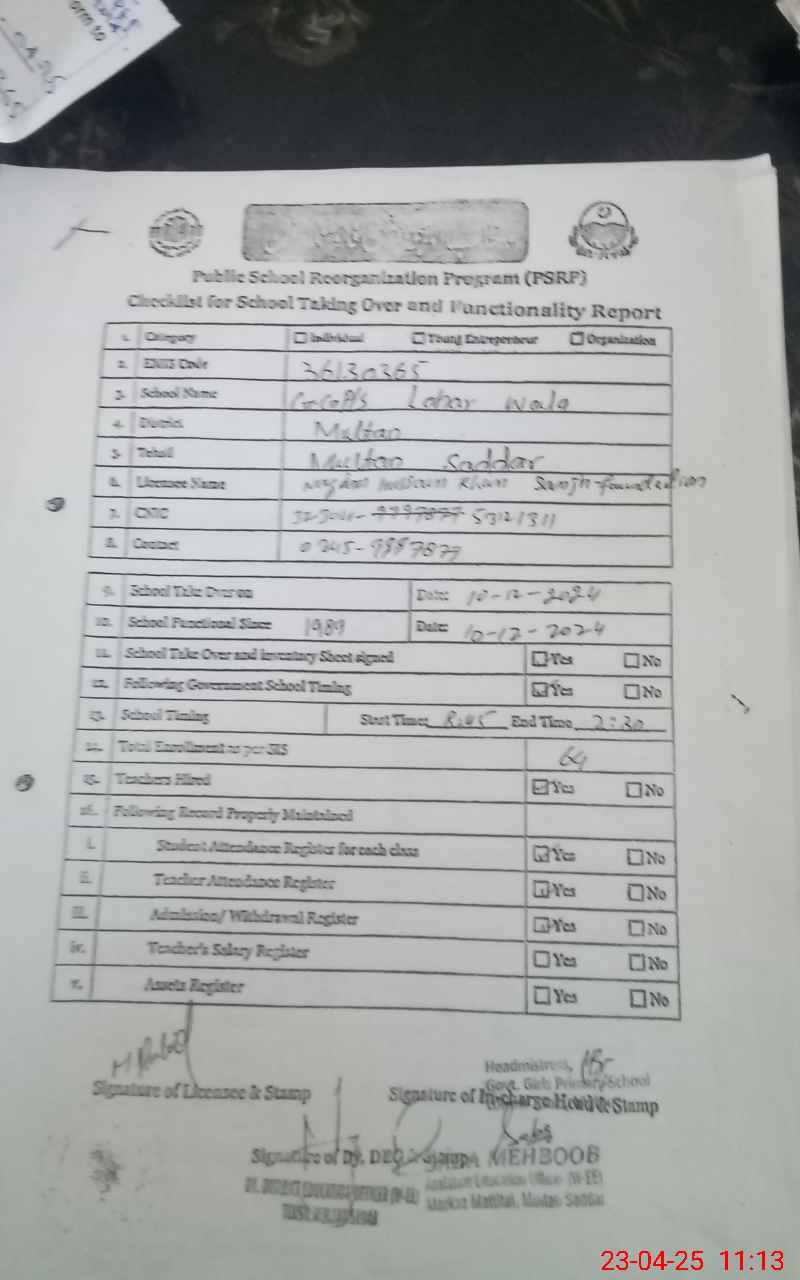 orm to
Public School Reorganization Program (PSRP)
Checklist for School Taking Over and Functionality Report
1. Category ☐ Individual ☐ Young Entrepreneur ☐ Organization
2. EMIS Code 36130365
3. School Name Lohar wala
4. District Multan
5. Tehsil Multan Saddar
6. Licensee Name Khan Sanjh foundation
7. CNIC
8. Contact
9. School Take Over on Date: 10-12-2024
10. School Functional Since 1989 Date: 10-12-2024
11. School Take Over and Inventory Sheet signed ☐ Yes ☐ No
12. Following Government School Timing ☑ Yes ☐ No
13. School Timing Start Time: 8:45 End Time 2:30
14. Total Enrollment as per SIS 64
15. Teachers Hired ☑ Yes ☐ No
16. Following Record Properly Maintained
i. Student Attendance Register for each class ☑ Yes ☐ No
ii. Teacher Attendance Register ☑ Yes ☐ No
iii. Admission/ Withdrawal Register ☑ Yes ☐ No
iv. Teacher's Salary Register ☐ Yes ☐ No
v. Assets Register ☐ Yes ☐ No
Headmistress,
Govt. Girls Primary School
Signature of Licensee & Stamp Signature of In-charge Head & Stamp
Signature of Dy. DEO MEHBOOB
Assistant Education Officer (W-EE)
Markaz Mattital, Multan Saddar
23-04-25 11:13